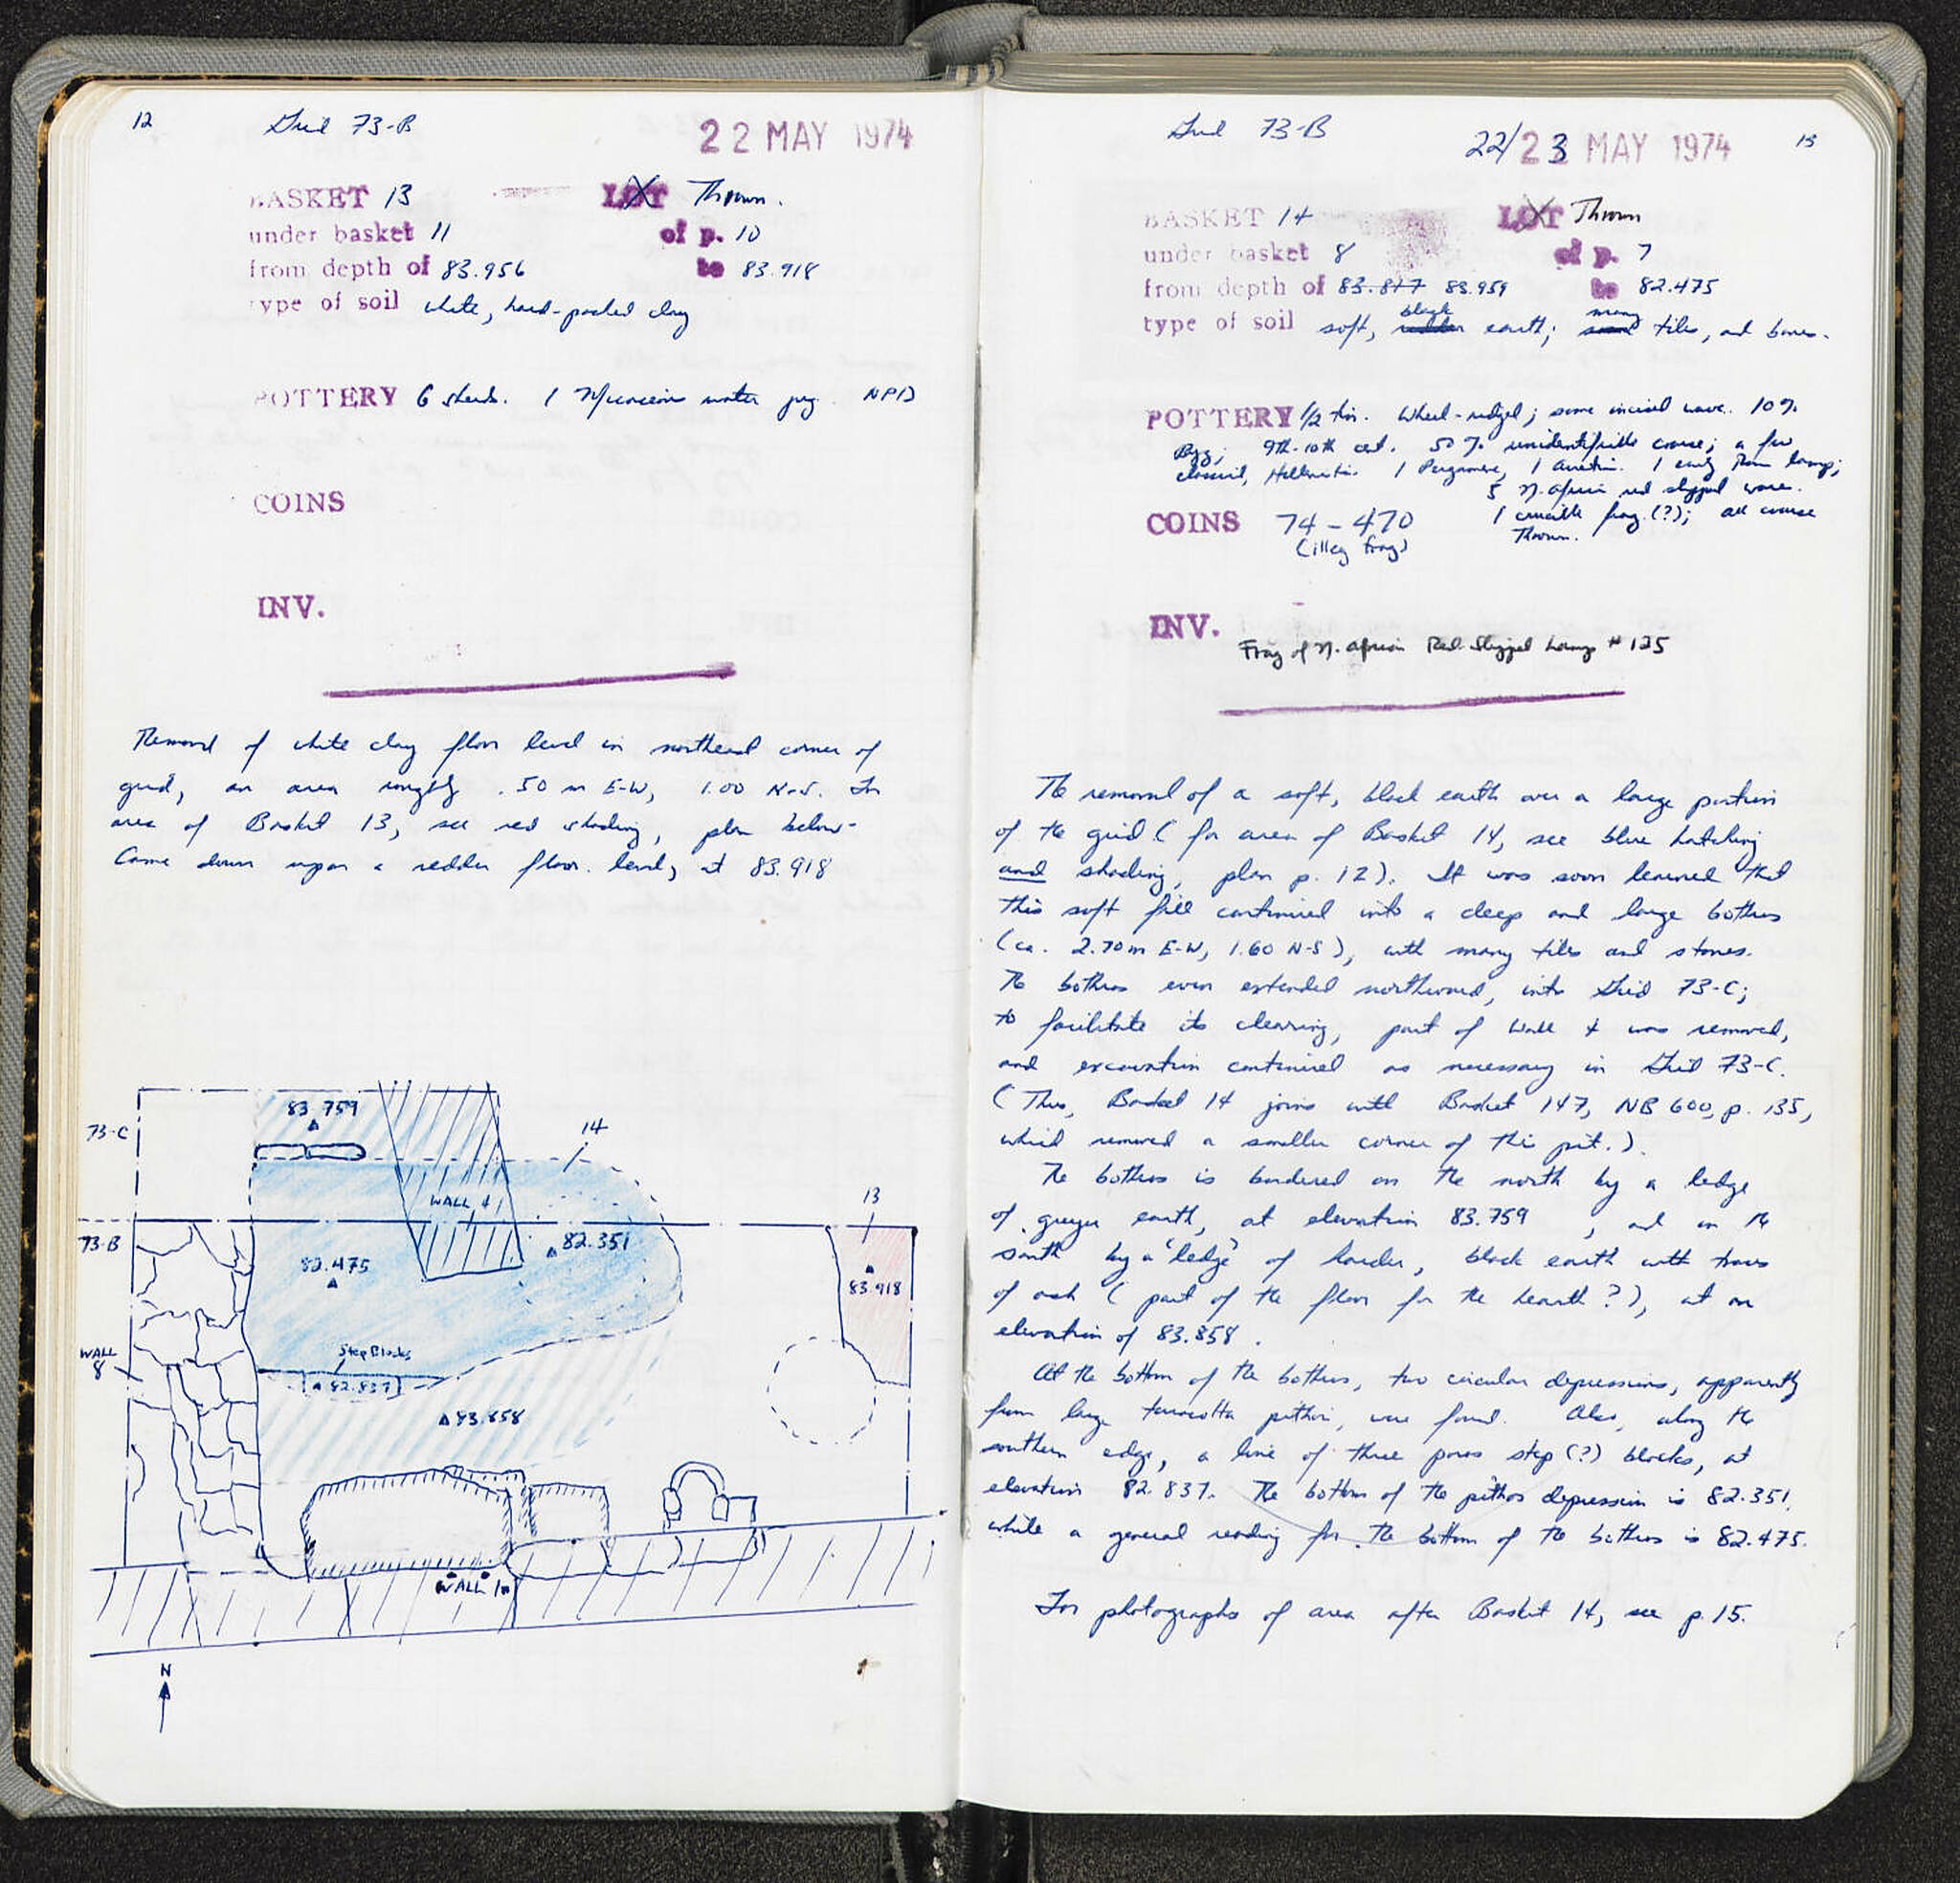 12 Grid 73-B 22 MAY 1974
BASKET 13 LOT Thrown.
under basket 11 of p. 10
from depth of 83.956 to 83.918
type of soil white, hard-packed clay
POTTERY 6 sherds. 1 Mycenean water jug. NPD
COINS
INV.
Removal of white clay floor level in northeast corner of
grid, an area roughly .50 m E-W, 1.00 N-S. For
area of Basket 13, see red shading, plan below-
Came down upon a redder floor level, at 83.918
83.759
73-C
14
WALL 4
13
73-B
82.475
82.351
83.918
Step Blocks
WALL 8
82.837
83.858
WALL 10
N
Grid 73-B 22/23 MAY 1974 13
BASKET 14 LOT Thrown
under basket 8 of p. 7
from depth of 83.877 83.959 to 82.475
type of soil soft, black earth; many tiles, and bones.
POTTERY 1/2 tin. Wheel-ridged; some incised ware. 10%
Byz; 9th-10th cent. 50% unidentifiable coarse; a few
classical, Hellenistic. 1 Pergamene, 1 Arretine. 1 early Rom lamp;
5 N. African red slipped ware.
1 crucible frag. (?); all coarse
Thrown.
COINS 74-470
(illeg frag)
INV. Frag of N. African Red-Slipped Lamp # 125
The removal of a soft, black earth over a large portion
of the grid (for area of Basket 14, see blue hatching
and shading, plan p. 12). It was soon learned that
this soft fill continued into a deep and large bothros
(ca. 2.70 m E-W, 1.60 N-S), with many tiles and stones.
The bothros even extended northward, into Grid 73-C;
to facilitate its clearing, part of Wall 4 was removed,
and excavation continued as necessary in Grid 73-C.
(Thus, Basket 14 joins with Basket 147, NB 600, p. 135,
which removed a smaller corner of this pit.).
The bothros is bordered on the north by a ledge
of greyer earth, at elevation 83.759, and on the
south by a "ledge" of harder, black earth with traces
of ash (part of the floor for the hearth?), at an
elevation of 83.858.
At the bottom of the bothros, two circular depressions, apparently
from large terracotta pithoi, were found. Also, along the
southern edge, a line of three poros step (?) blocks, at
elevation 82.837. The bottom of the pithos depression is 82.351,
while a general reading for the bottom of the bothros is 82.475.
For photographs of area after Basket 14, see p. 15.